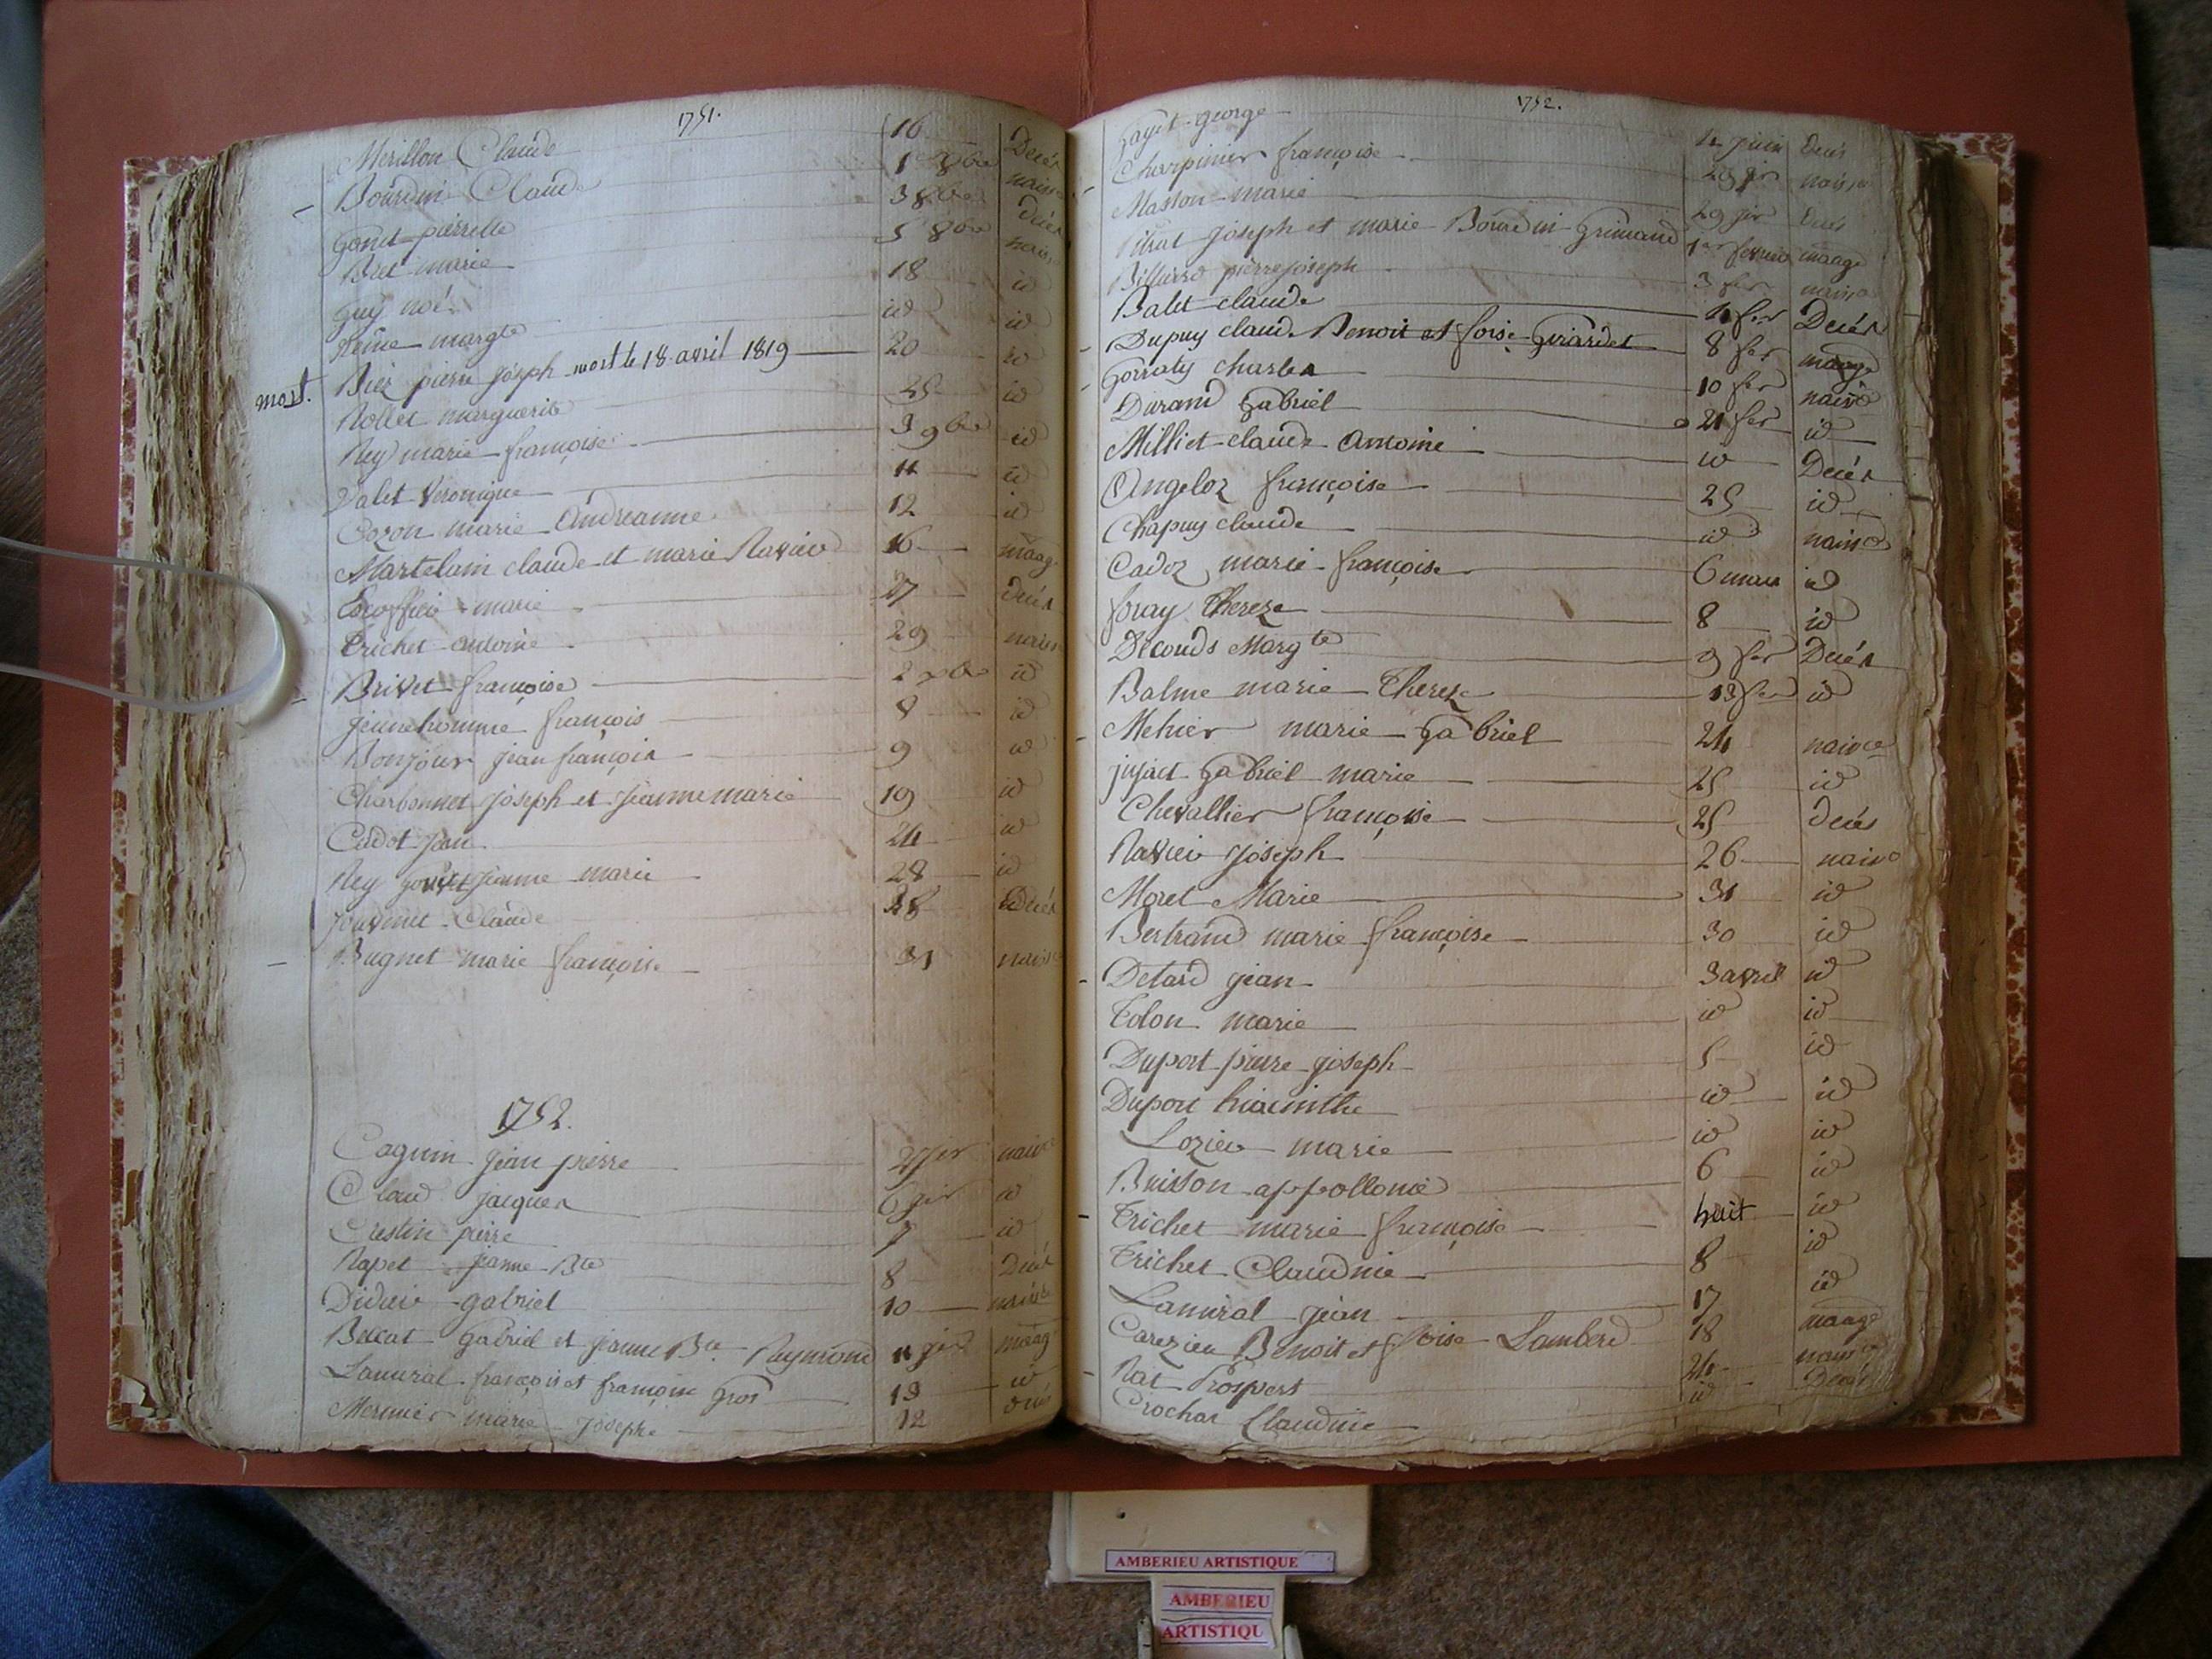 1751.
Merillon Claude 16 Decés
Bourdin Claude 1 8bre naiss
Gonet pierrette 3 8bre Decés
Bret marie 5 8bre naiss
Guy noé 18 id
Reine margte id id
mort. Biez pierre joseph mort le 18 avril 1819 20 id
Rollet marguerite 25 id
Rey marie françoise 3 9bre id
Valet Veronique 11 id
Cozon marie Andréanne 12 id
Martelain claude et marie Ravier 16 maage
Escoffier marie 27 decés
Trichet antoine 29 naiss
Brivet françoise 2 xbre id
jeunehomme françois 8 id
Bonjour jean françois 9 id
Charbonnet joseph et jeanne marie 19 id
Cadot jean 24 id
Rey jeanne marie 28 id
jouvenet Claude 28 Decés
Bugnet marie françoise 31 naiss
1752.
Cagnin jean pierre jer naice
Claud jacques 6 jer id
Crestin pierre 7 id
Rapet jeanne Bte 8 Decés
Didier gabriel 10 naice
Beccat Gabriel et jeanne Bte Raymond 11 jer maage
Lamiral françois et françoise Gros 13 id
Mermier marie josephe 12 decés
1752.
Gayet george Decés
Charpinier françoise 29 jer naisse
Masson marie 29 jer Decés
joseph et marie Bourdin Grimaud 1er fevrier maage
Billiard pierre joseph 3 naisse
Balet claude 4 fer Decés
Dupuy claude Benoit et foise Girardet 8 fer maage
Gorraty charles 10 fer naisce
Durand Gabriel 21 fer id
Milliet claude Antoine id Decés
Angeloz françoise 25 id
Chapuy claude id naisce
Cadoz marie françoise 6 mars id
foray Thereze 8 id
Deconds Margte 9 fer Decés
Balme marie Thereze 13 fer id
Mehier marie Gabriel 24 naisce
jujact Gabriel marie 25 id
Chevallier françoise 25 decés
Ravier joseph 26 naisce
Moret Marie 31 id
Bertrand marie françoise 30 id
Detard jean 3 avril id
Tolon marie id id
Duport pierre joseph 5 id
Duport hiacinthe id id
Lozier marie id id
Buisson appollonie 6 id
Trichet marie françoise huit id
Trichet Claudine 8 id
Lamiral jean 17 id
Carezieu Benoit et foise Lambert 18 maage
Rat Prospert 24 naisce
Crochat Claudine id Decés
AMBERIEU ARTISTIQUE
AMBERIEU
ARTISTIQU